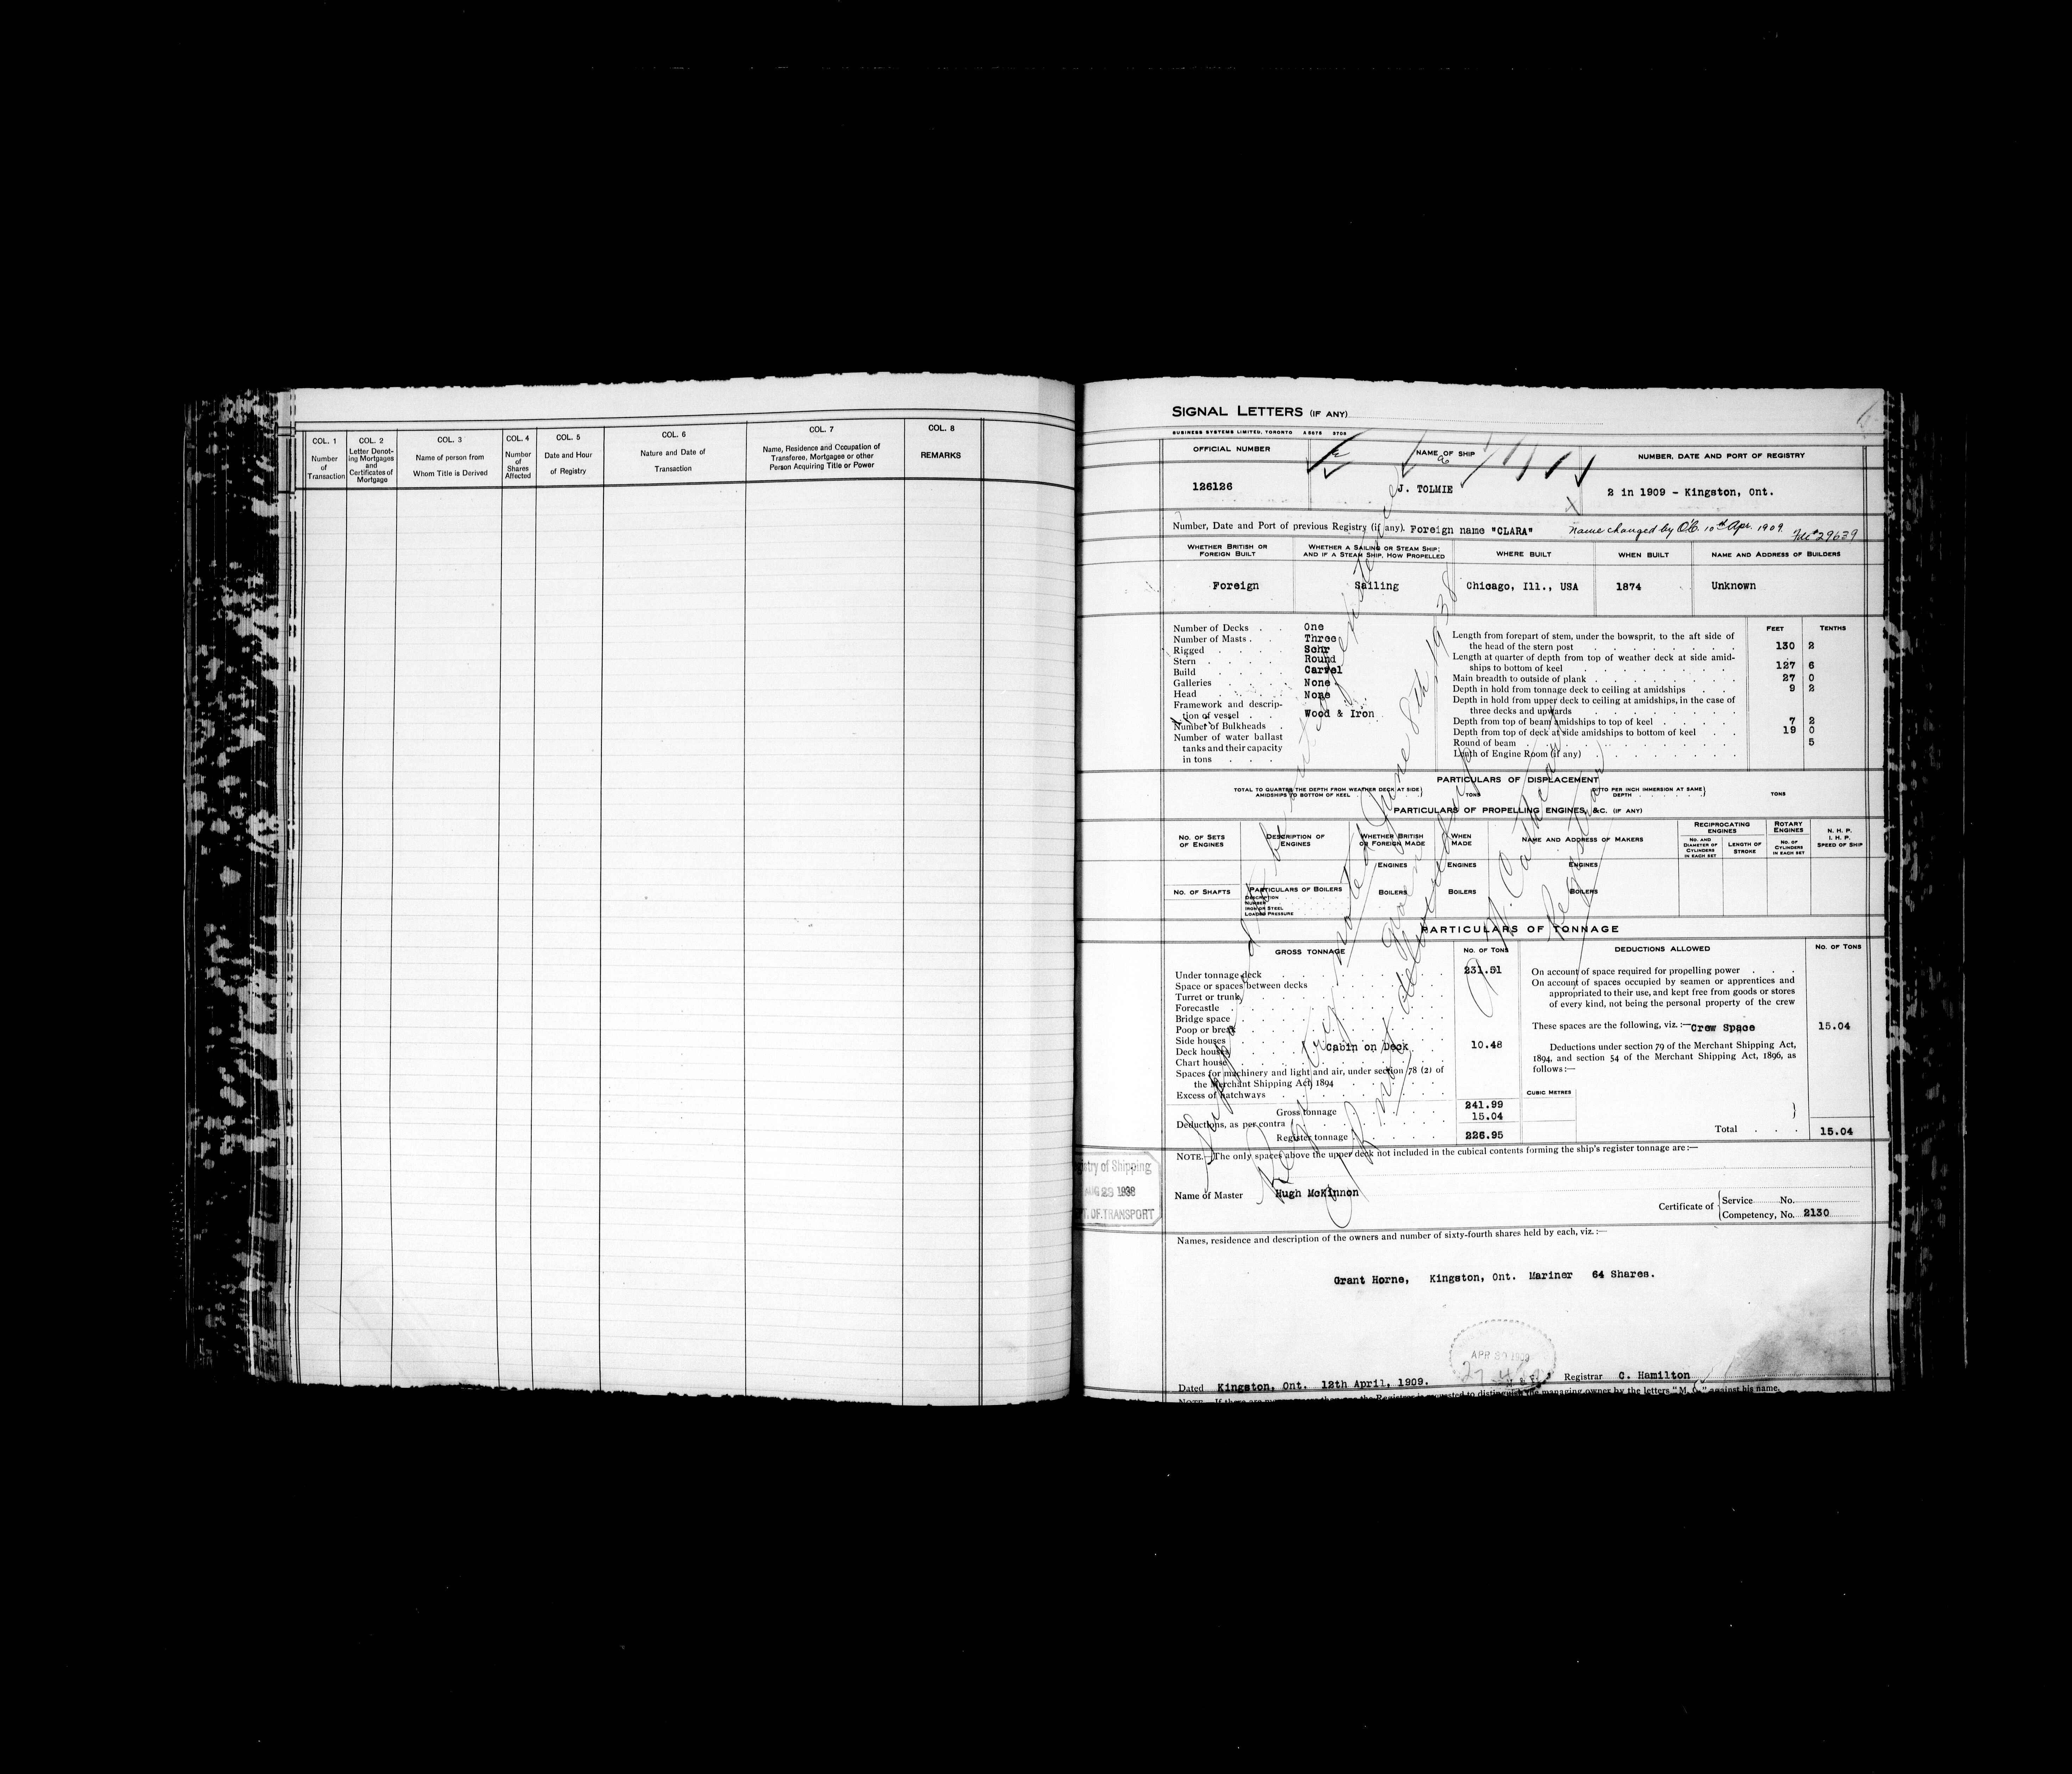 COL. 1
Number
of
Transaction
COL. 2
Letter Denot-
ing Mortgages
and
Certificates of
Mortgage
COL. 3
Name of person from
Whom Title is Derived
COL. 4
Number
of
Shares
Affected
COL. 5
Date and Hour
of Registry
COL. 6
Nature and Date of
Transaction
COL. 7
Name, Residence and Occupation of
Transferee, Mortgagee or other
Person Acquiring Title or Power
COL. 8
REMARKS
SIGNAL LETTERS (IF ANY)
BUSINESS SYSTEMS LIMITED, TORONTO
OFFICIAL NUMBER
NAME OF SHIP
NUMBER, DATE AND PORT OF REGISTRY
126126
J. TOLMIE
2 in 1909 - Kingston, Ont.
Number, Date and Port of previous Registry (if any). Foreign name "CLARA"
Name changed by O.C. 10th Apr. 1909.
File 29639
WHETHER BRITISH OR
FOREIGN BUILT
WHETHER A SAILING OR STEAM SHIP;
AND IF A STEAM SHIP, HOW PROPELLED
WHERE BUILT
WHEN BUILT
NAME AND ADDRESS OF BUILDERS
Foreign
Sailing
Chicago, Ill., USA
1874
Unknown
Number of Decks One
Number of Masts Three
Rigged Schr
Stern Round
Build Carvel
Galleries None
Head None
Framework and descrip-
tion of vessel Wood & Iron
Number of Bulkheads
Number of water ballast
tanks and their capacity
in tons
FEET TENTHS
Length from forepart of stem, under the bowsprit, to the aft side of
the head of the stern post 130 2
Length at quarter of depth from top of weather deck at side amid-
ships to bottom of keel 127 6
Main breadth to outside of plank 27 0
Depth in hold from tonnage deck to ceiling at amidships 9 2
Depth in hold from upper deck to ceiling at amidships, in the case of
three decks and upwards
Depth from top of beam amidships to top of keel 7 2
Depth from top of deck at side amidships to bottom of keel 19 0
Round of beam 5
Length of Engine Room (if any)
PARTICULARS OF DISPLACEMENT
TOTAL TO QUARTER THE DEPTH FROM WEATHER DECK AT SIDE
AMIDSHIPS TO BOTTOM OF KEEL
TONS
DITTO PER INCH IMMERSION AT SAME
DEPTH
TONS
PARTICULARS OF PROPELLING ENGINES, &C. (IF ANY)
NO. OF SETS
OF ENGINES
DESCRIPTION OF
ENGINES
WHETHER BRITISH
OR FOREIGN MADE
WHEN
MADE
NAME AND ADDRESS OF MAKERS
RECIPROCATING
ENGINES
NO. AND
DIAMETER OF
CYLINDERS
IN EACH SET
LENGTH OF
STROKE
ROTARY
ENGINES
NO. OF
CYLINDERS
IN EACH SET
N. H. P.
I. H. P.
SPEED OF SHIP
ENGINES
ENGINES
ENGINES
NO. OF SHAFTS
PARTICULARS OF BOILERS
DESCRIPTION
NUMBER
IRON OR STEEL
LOADED PRESSURE
BOILERS
BOILERS
BOILERS
PARTICULARS OF TONNAGE
GROSS TONNAGE
NO. OF TONS
DEDUCTIONS ALLOWED
NO. OF TONS
Under tonnage deck 231.51
Space or spaces between decks
Turret or trunk
Forecastle
Bridge space
Poop or break
Side houses
Deck houses Cabin on Deck 10.48
Chart house
Spaces for machinery and light and air, under section 78 (2) of
the Merchant Shipping Act, 1894
Excess of hatchways
Gross tonnage 241.99
Deductions, as per contra 15.04
Register tonnage 226.95
On account of space required for propelling power
On account of spaces occupied by seamen or apprentices and
appropriated to their use, and kept free from goods or stores
of every kind, not being the personal property of the crew
These spaces are the following, viz.:—Crew Space 15.04
Deductions under section 79 of the Merchant Shipping Act,
1894, and section 54 of the Merchant Shipping Act, 1896, as
follows:—
CUBIC METRES
Total 15.04
NOTE.—The only spaces above the upper deck not included in the cubical contents forming the ship's register tonnage are:—
Name of Master Hugh McKinnon
Certificate of
Service No.
Competency, No. 2130
Names, residence and description of the owners and number of sixty-fourth shares held by each, viz.:—
Grant Horne, Kingston, Ont. Mariner 64 Shares.
Dated Kingston, Ont. 12th April, 1909.
Registrar C. Hamilton
APR 30 1909
of Shipping
AUG 29 1938
OF TRANSPORT
Registry noted June 8th, 1938
Registrar